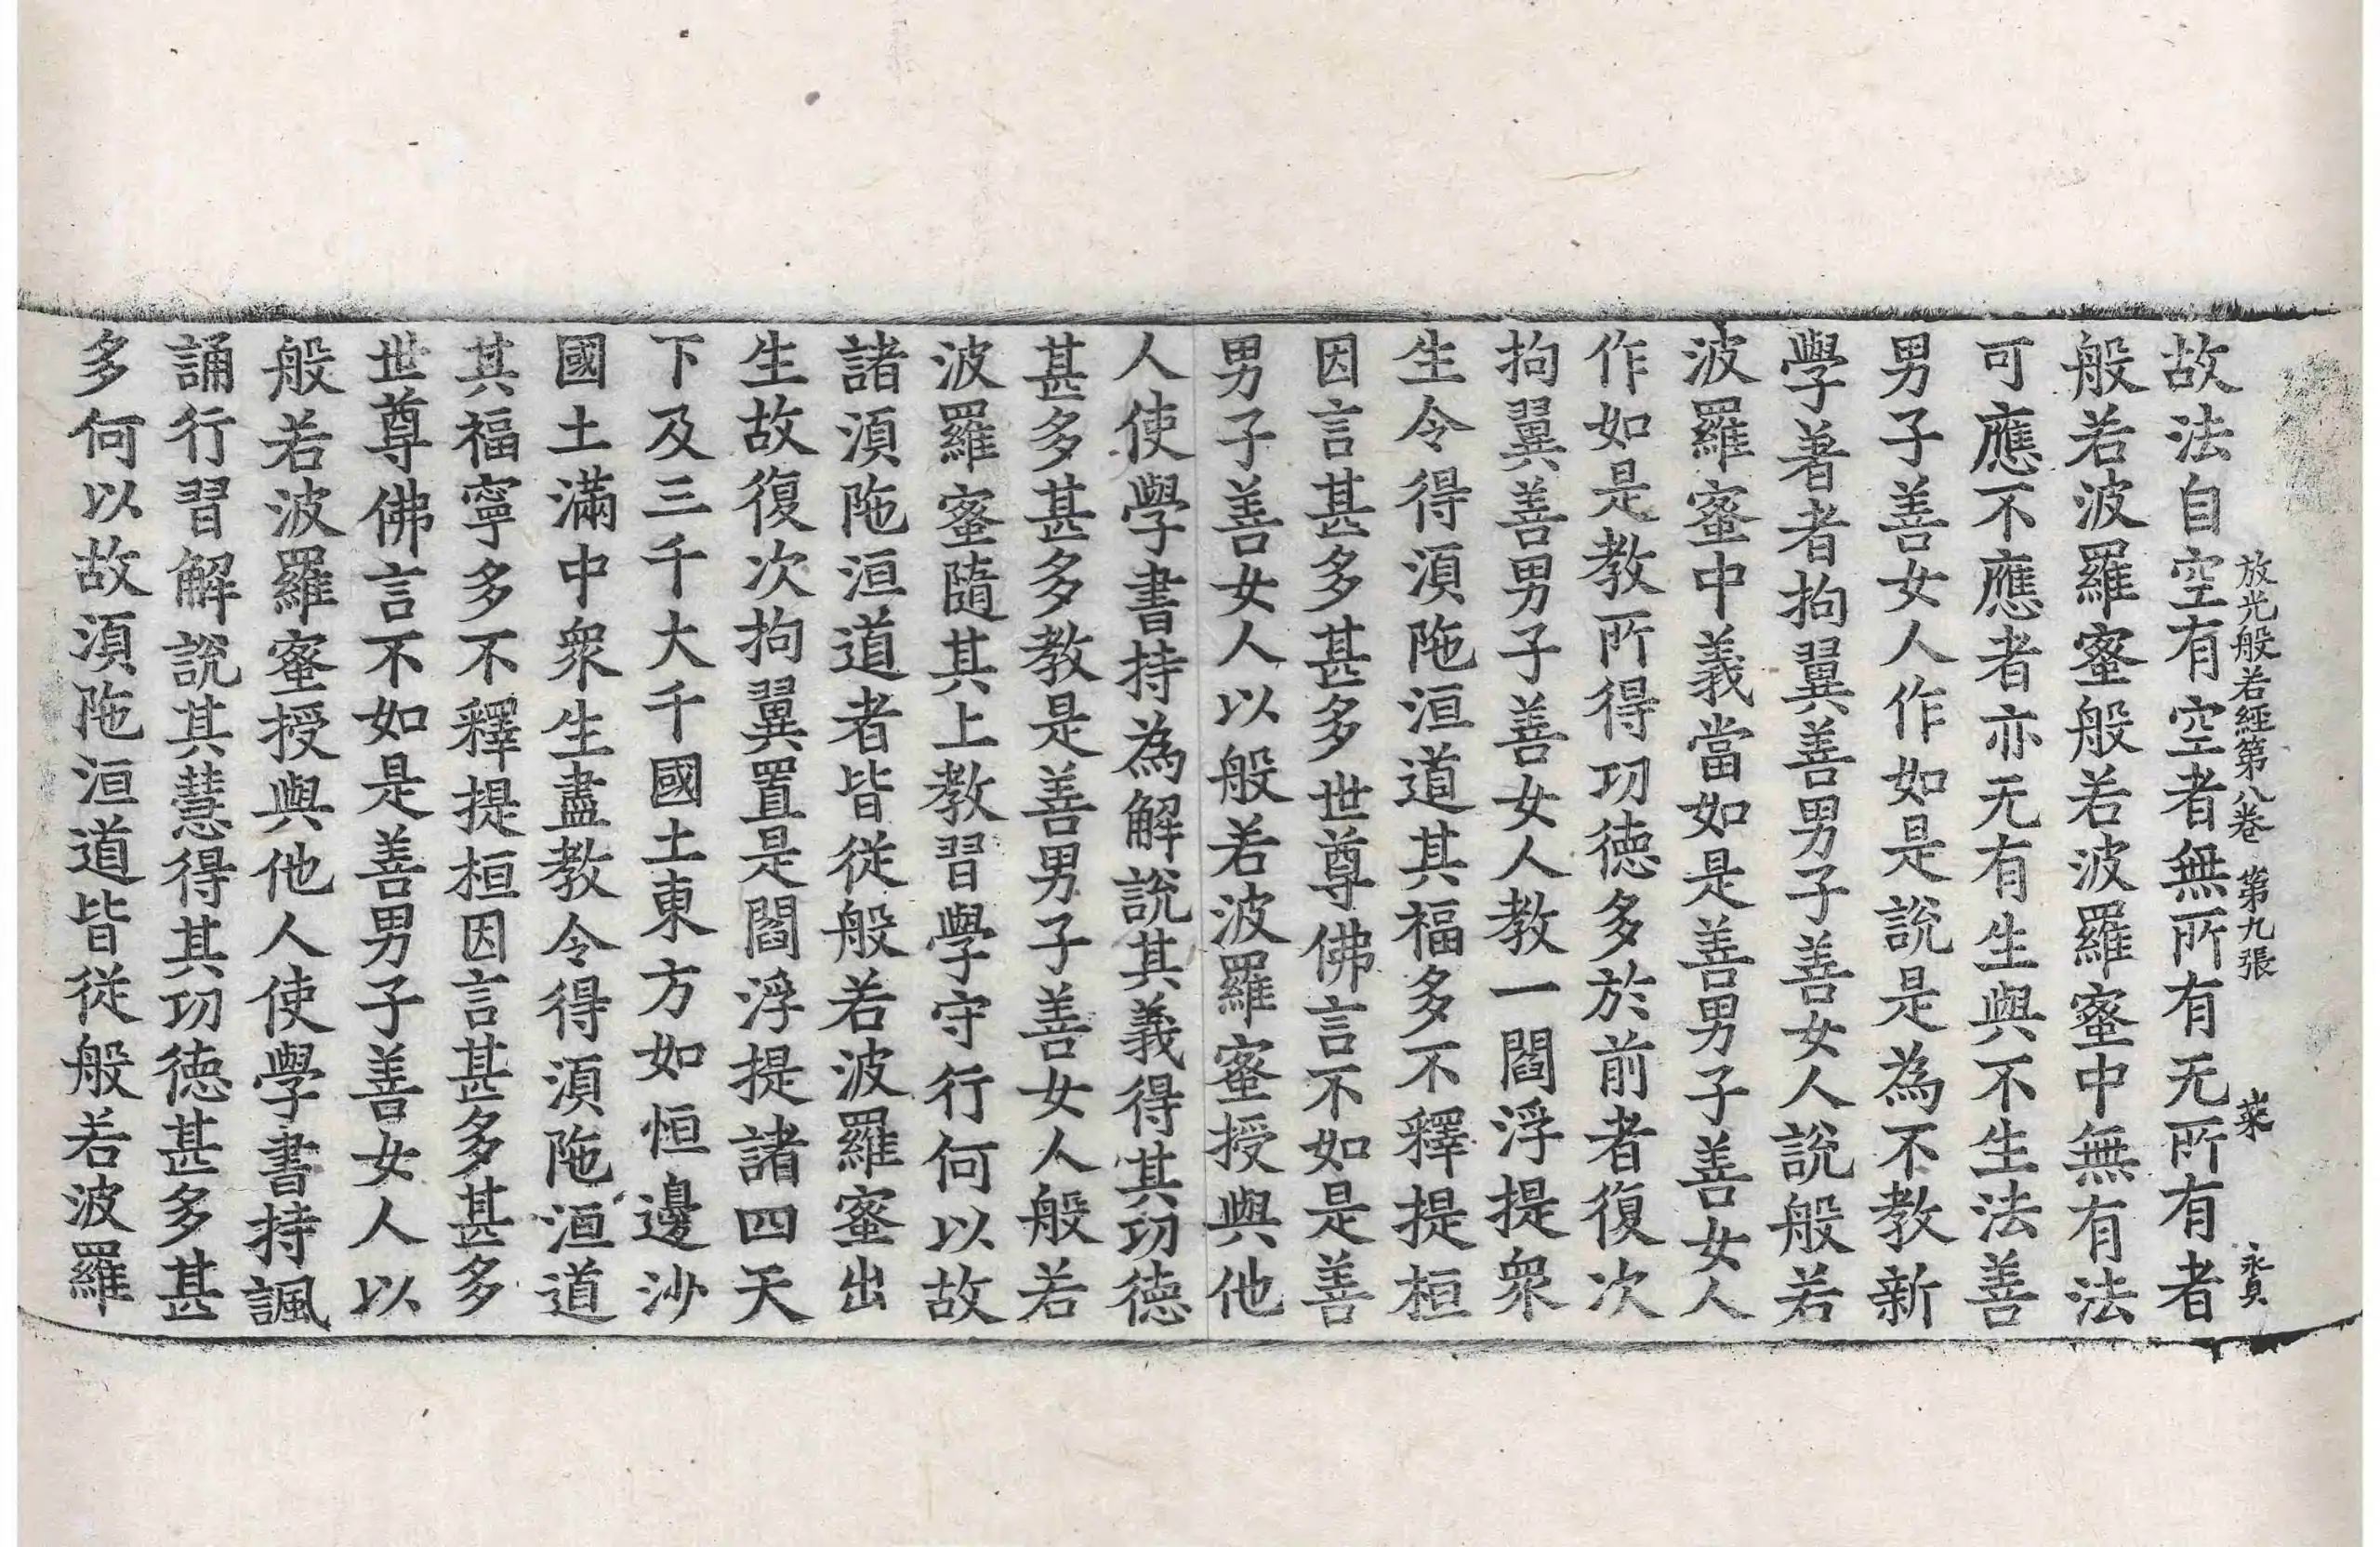 放光般若經第八卷 第九張 菜 永貞
故法自空有空者無所有无所有者
般若波羅蜜般若波羅蜜中無有法
可應不應者亦无有生與不生法善
男子善女人作如是說是為不教新
學著者拘翼善男子善女人說般若
波羅蜜中義當如是善男子善女人
作如是教所得功德多於前者復次
拘翼善男子善女人教一閻浮提眾
生令得須陁洹道其福多不釋提桓
因言甚多甚多世尊佛言不如是善
男子善女人以般若波羅蜜授與他
人使學書持為解說其義得其功德
甚多甚多教是善男子善女人般若
波羅蜜隨其上教習學守行何以故
諸須陁洹道者皆從般若波羅蜜出
生故復次拘翼置是閻浮提諸四天
下及三千大千國土東方如恒邊沙
國土滿中眾生盡教令得須陁洹道
其福寧多不釋提桓因言甚多甚多
世尊佛言不如是善男子善女人以
般若波羅蜜授與他人使學書持諷
誦行習解說其慧得其功德甚多甚
多何以故須陁洹道皆從般若波羅